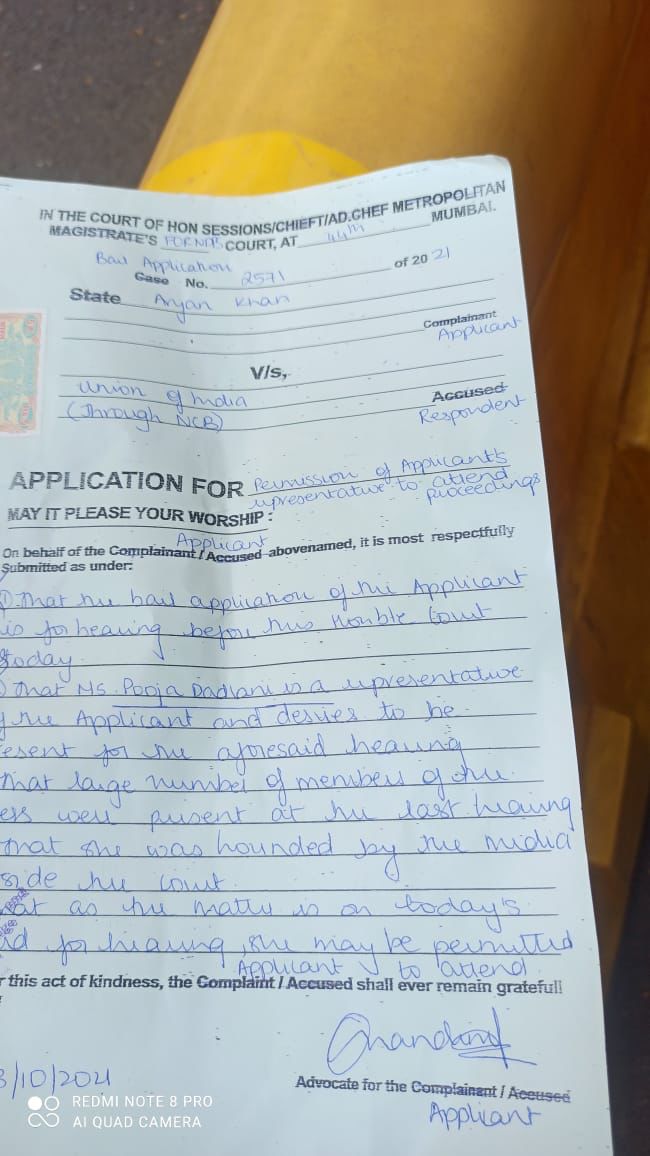 IN THE COURT OF HON SESSIONS/CHIEFT/AD.CHEF METROPOLITAN
MAGISTRATE'S FOR NDPS COURT, AT 44th MUMBAI.
Bail Application
Case No. 2571 of 2021
State Aryan Khan
Complainant
Applicant
V/s,
Union of India
(Through NCB)
Accused
Respondent
APPLICATION FOR Permission of Applicant's
representative to attend
proceedings
MAY IT PLEASE YOUR WORSHIP :
Applicant
On behalf of the Complainant / Accused abovenamed, it is most respectfully
Submitted as under:
) That the bail application of the Applicant
is for hearing before this Hon'ble Court
today
) That Ms. Pooja Dadlani is a representative
the Applicant and desires to be
esent for the aforesaid hearing
That large number of members of the
ess were present at the last hearing
that she was hounded by the media
side the court.
at as the matter is on today's
for hearing, she may be permitted
to attend.
Applicant
r this act of kindness, the Complaint / Accused shall ever remain gratefull
3/10/2021
Advocate for the Complainant / Accused
Applicant
REDMI NOTE 8 PRO
AI QUAD CAMERA